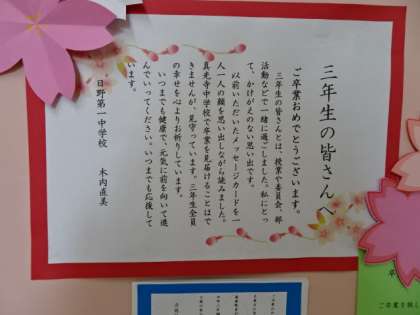 三年生の皆さんへ
ご卒業おめでとうございます。
三年生の皆さんとは、授業や委員会、部
活動などで一緒に過ごしました。私にとっ
て、かけがえのない思い出です。
以前いただいたメッセージカードを一
人一人の顔を思い出しながら読みました。
真光寺中学校で卒業を見届けることはで
きませんが、見守っています。三年生全員
の幸せを心よりお祈りしています。
いつまでも健康で、元気に前を向いて進
んでいってください。いつまでも応援して
います。
日野第一中学校 木内直美
ご卒業